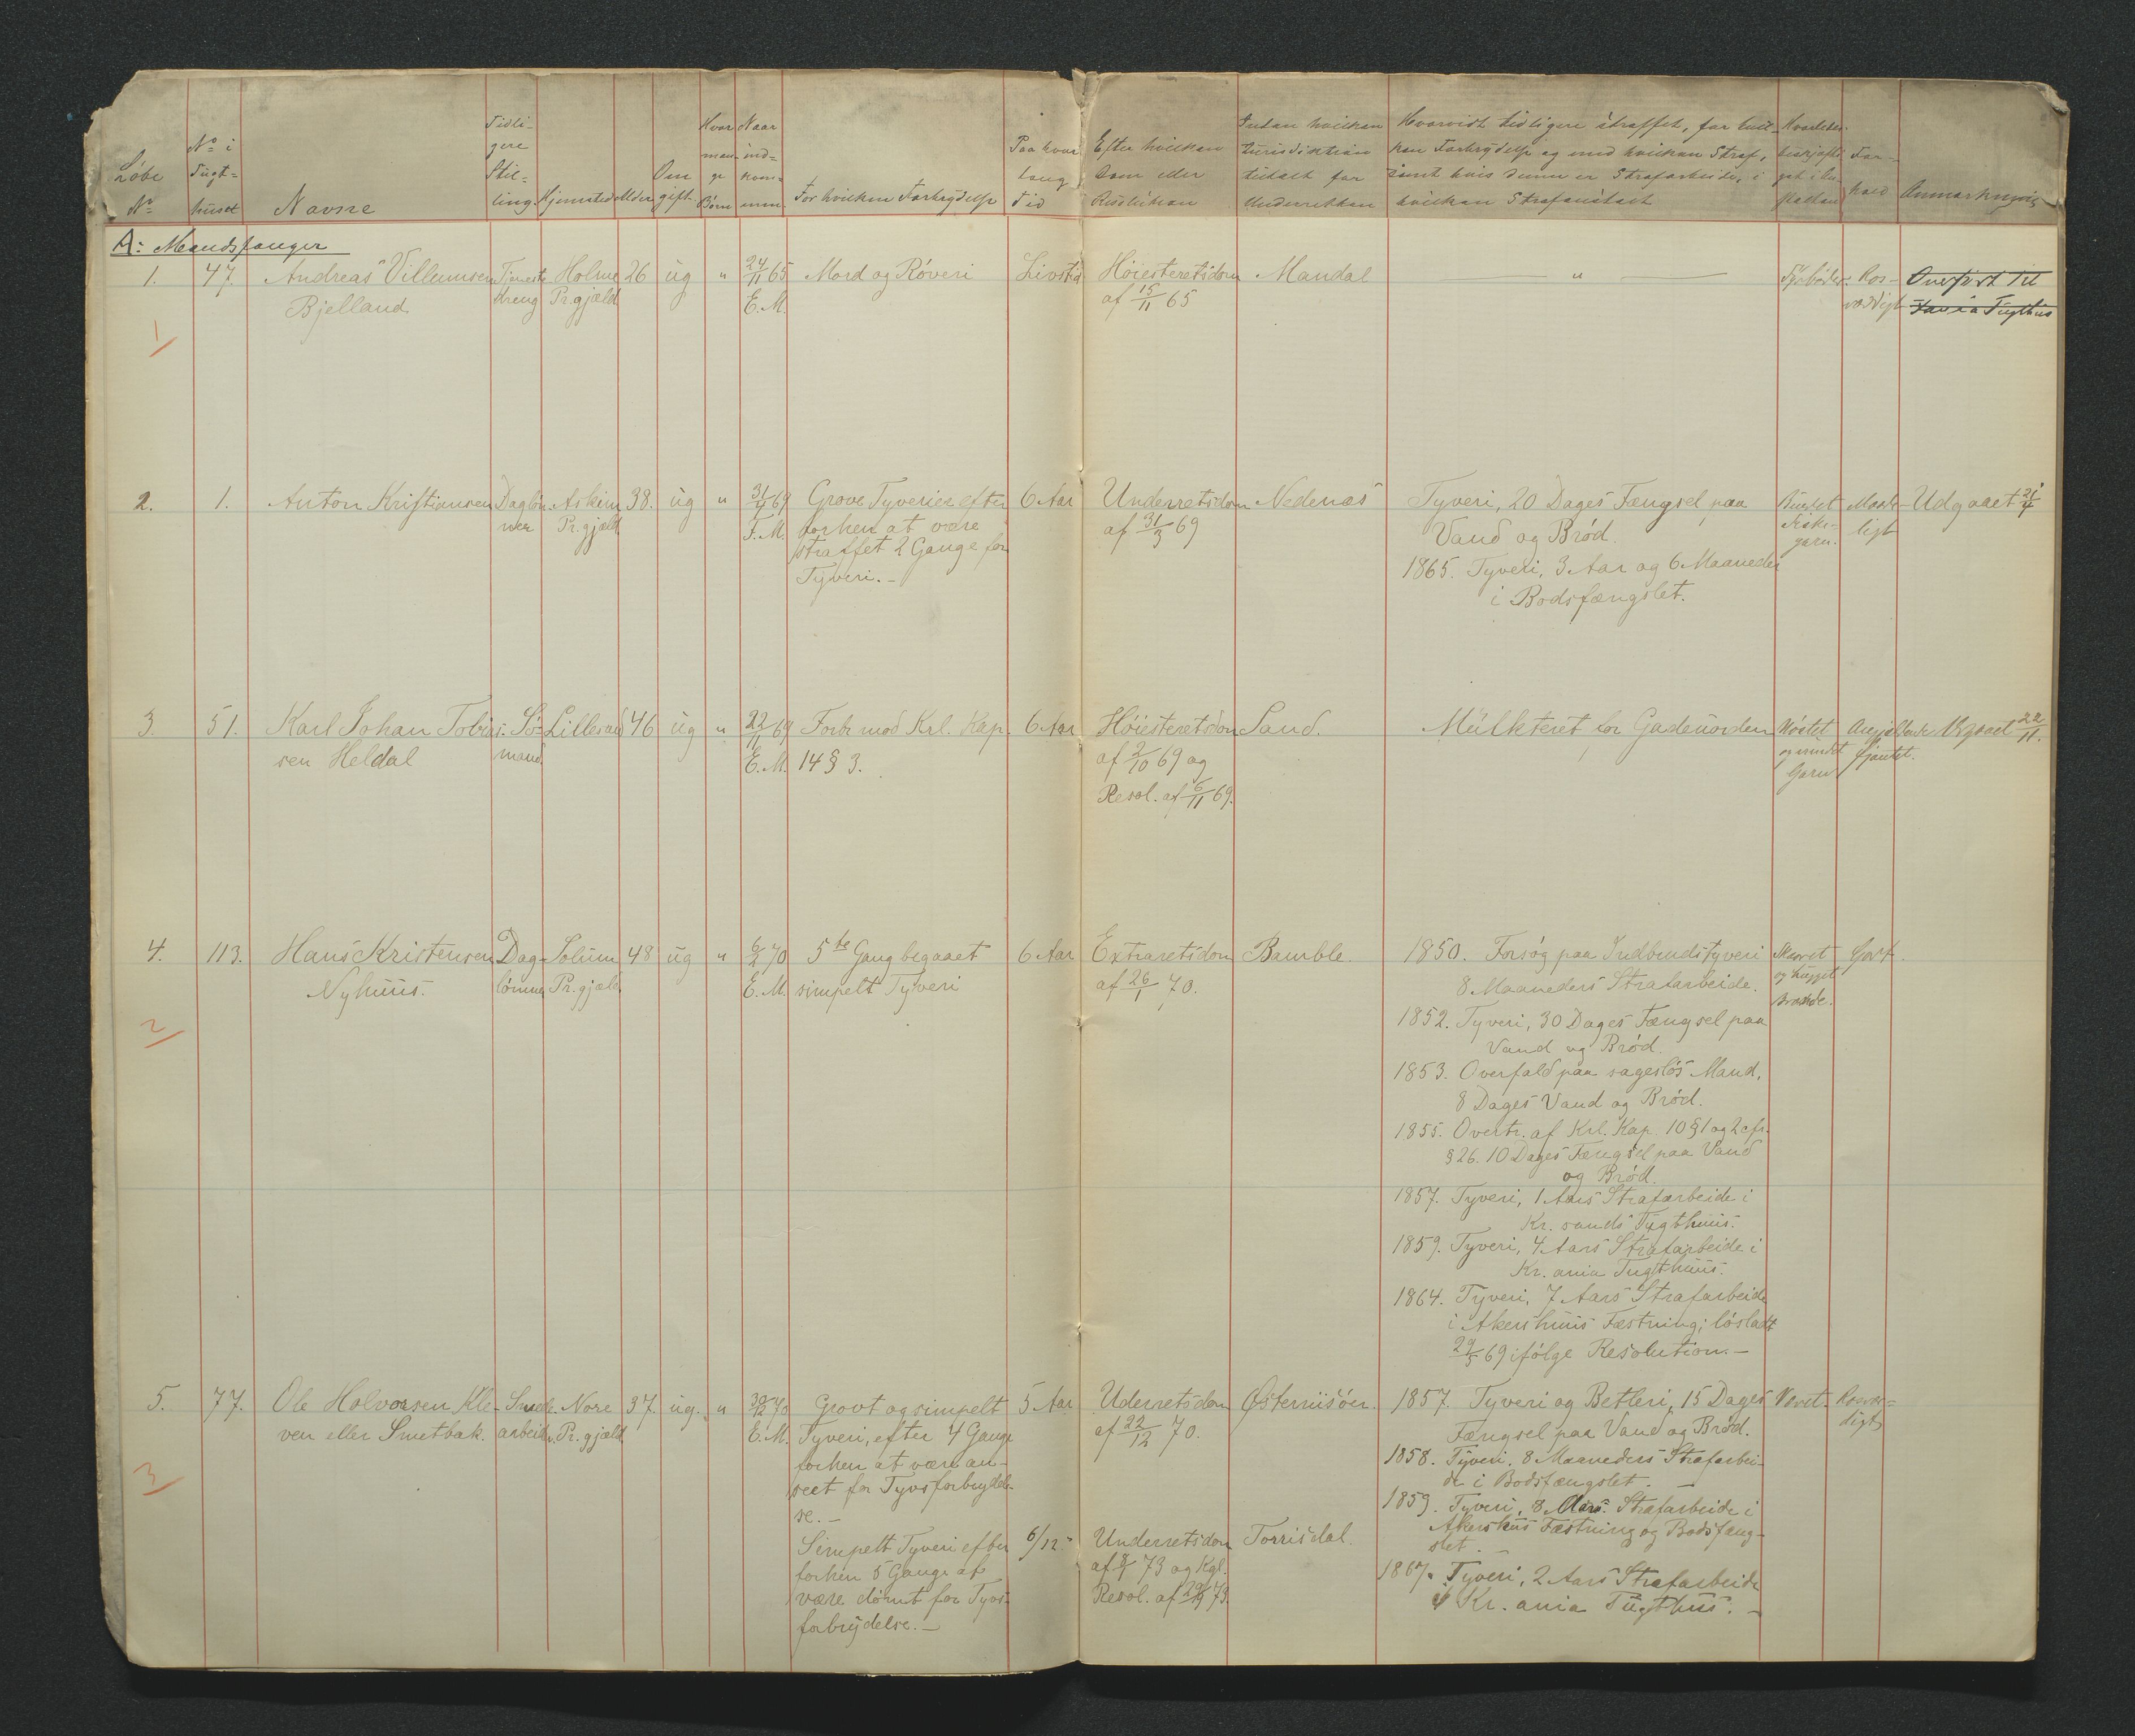 Løbe No
No i Tugthuset
Navne
Tidligere Stilling
Hjemsted
Alder
Om gift
Hvor mange Børn
Naar indkommen
For hvilken Forbrydelse
Paa hvor lang Tid
Efter hvilken Dom eller Resolution
Under hvilken Jurisdiktion tiltalt for Underretten
Hvorvidt tidligere straffet, for hvilken Forbrydelse og med hvilken Straf, samt hvis denne er Strafarbeide, i hvilken Strafanstalt
Hvorledes beskjæftiget i Anstalten
Forhold
Anmærkning
A: Mandsfanger
1. 47. Andreas Villumsen Tjeneste Holme 26 ug " 24/11 65 Mord og Røveri Livstid Høiesteretsdom Mandal " Fyrbøder Ros- Overført til
Bjelland dreng Pr.gjæld E.M. af 15/11 65 værdigt Tugthus
1
2. 1. Anton Kristiansen Dagløn- Askim 38. ug " 69 Grove Tyverier efter 6 Aar Underretsdom Nedenæs Tyveri, 20 Dages Fængsel paa Bundet Maade- Udgaaet
ner Pr.gjæld F.M. forhen at være af 31/3 69 Vand og Brød. Fiske- ligt
straffet 2 Gange for garn.
Tyveri. - 1865. Tyveri, 3 Aar og 6 Maaneder
i Bodsfængslet.
3. 51. Karl Johan Tobia- Sø- Lillesand 46 ug " 22/11 69 Forbr mod Krl. Kap. 6 Aar Høiesteretsdom Sand. Mulkteret for Gadeuorden 22/11.
sen Heldal mand E.M. 14 § 3. af 2/10 69 og og bundet
Resol. af 6/11 69. Garn
4. 113. Hans Kristensen Dag- Solum 48 ug " 6/2 70 5te Gang begaaet 6 Aar Extraretsdom Bamble. 1850. Forsøg paa Indbrudstyveri Skaaret Godt.
Nyhuus. lønner Pr.gjæld. E.M. simpelt Tyveri af 26/1 70. 8 Maaneders Strafarbeide. og hugget
Brænde.
2 1852. Tyveri, 30 Dages Fængsel paa
Vand og Brød.
1853. Overfald paa sagesløs Mand,
8 Dages Vand og Brød.
1855. Overtr. af Krl. Kap. 10 § 1 og 2 cfr.
§ 26. 10 Dages Fængsel paa Vand
og Brød.
1857. Tyveri, 1 Aars Strafarbeide i
Kr. sands Tugthuus.
1859. Tyveri, 4 Aars Strafarbeide i
Kr. ania Tugthuus.
1864. Tyveri, 7 Aars Strafarbeide
i Akershuus Fæstning; løsladt
29/5 69 ifølge Resolution. -
5. 77. Ole Halvorsen Kle- Smede- Nore 37. ug. " 30/12 70 Grovt og simpelt 5 Aar Uderretsdom Østerriisøer. 1857. Tyveri og Betleri, 15 Dages Vævet. Rosvær-
ven eller Smetbak. arbeider. Pr.gjæld. E.M. Tyveri, efter 4 Gange af 22/12 70. Fængsel paa Vand og Brød. digt
3 forhen at være an- 1858. Tyveri. 8 Maaneders Strafarbei-
seet for Tyvsforbrydel- de i Bodsfængslet. -
se. - 1859. Tyveri, 8 Aars. Strafarbeide i
Akershus Fæstning og Bodsfæng-
slet. -
Simpelt Tyveri efter 6/12 Underretsdom Torrisdal.
forhen 5 Gange at 73 og Kgl. 1867. Tyveri, 2 Aars Strafarbeide
være dømt for Tyvs- Resol. af 73. i Kr. ania Tugthus. -
forbrydelse. -